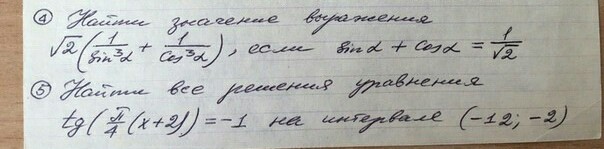 ④ Найти значение выражения
√2(1/sin³α + 1/cos³α), если sinα + cosα = 1/√2
⑤ Найти все решения уравнения
tg(π/4(x+2)) = -1 на интервале (-12; -2)